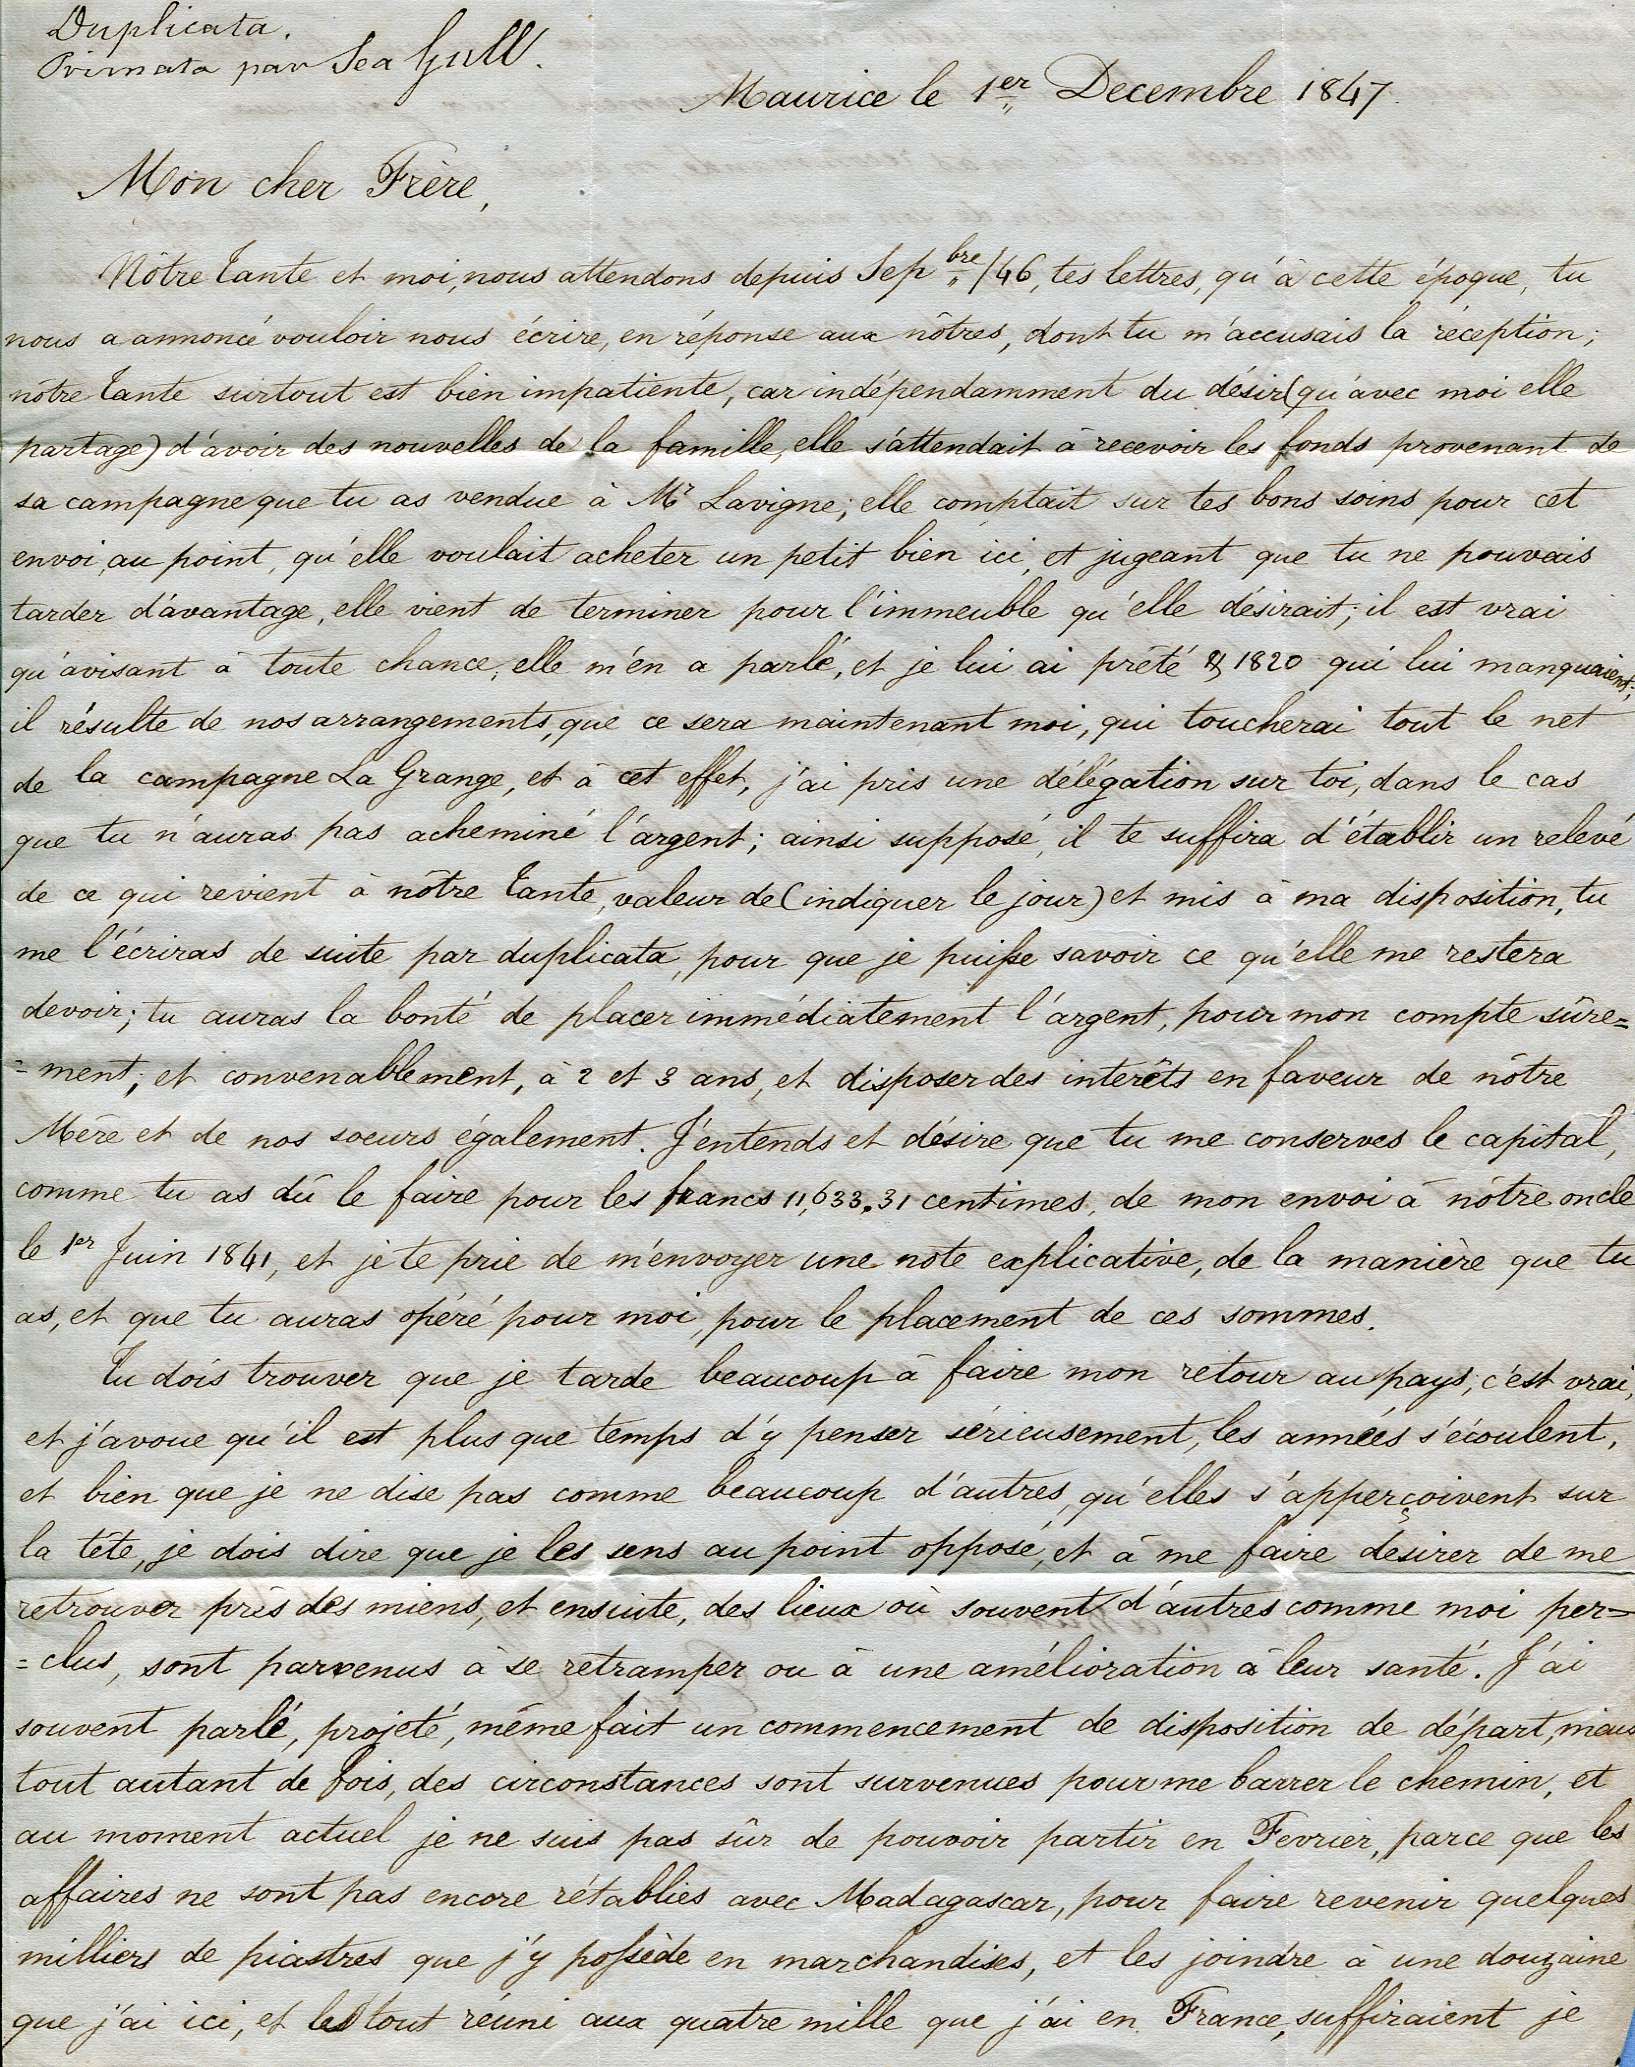 Duplicata.
Primata par Sea Gull.
Maurice le 1er Decembre 1847.
Mon cher Frère,
Nôtre Tante et moi, nous attendons depuis Sepbre/46, tes lettres, qu'à cette époque, tu
nous a annoncé vouloir nous écrire, en réponse aux nôtres, dont tu m'accusais la réception;
nôtre Tante surtout est bien impatiente, car indépendamment du désir (qu'avec moi elle
partage) d'avoir des nouvelles de la famille, elle s'attendait à recevoir les fonds provenant de
sa campagne que tu as vendue à Mr Lavigne; elle comptait sur tes bons soins pour cet
envoi, au point, qu'elle voulait acheter un petit bien ici, et jugeant que tu ne pouvais
tarder d'avantage, elle vient de terminer pour l'immeuble qu'elle désirait; il est vrai
qu'avisant à toute chance, elle m'en a parlé, et je lui ai prêté 1820 qui lui manquaient;
il résulte de nos arrangements, que ce sera maintenant moi, qui toucherai tout le net
de la campagne La Grange, et à cet effet, j'ai pris une délégation sur toi, dans le cas
que tu n'auras pas acheminé l'argent; ainsi supposé, il te suffira d'établir un relevé
de ce qui revient à nôtre Tante, valeur de (indiquer le jour) et mis à ma disposition, tu
me l'écriras de suite par duplicata, pour que je puisse savoir ce qu'elle me restera
devoir; tu auras la bonté de placer immédiatement l'argent, pour mon compte sûre=
=ment, et convenablement, à 2 et 3 ans, et disposer des interêts en faveur de nôtre
Mère et de nos soeurs également. J'entends et désire que tu me conserves le capital,
comme tu as dû le faire pour les francs 11,633.31 centimes, de mon envoi à nôtre oncle
le 1er Juin 1841, et je te prie de m'envoyer une note explicative, de la manière que tu
as, et que tu auras opéré pour moi, pour le placement de ces sommes.
Tu dois trouver que je tarde beaucoup à faire mon retour au pays; c'est vrai,
et j'avoue qu'il est plus que temps d'y penser sérieusement, les années s'écoulent,
et bien que je ne dise pas comme beaucoup d'autres, qu'elles s'apperçoivent sur
la tête, je dois dire que je les sens au point opposé, et à me faire désirer de me
retrouver près des miens, et ensuite, des lieux où souvent d'autres comme moi per=
=clus, sont parvenus à se retramper ou à une amélioration à leur santé. J'ai
souvent parlé, projeté, même fait un commencement de disposition de départ, mais
tout autant de fois, des circonstances sont survenues pour me barrer le chemin, et
au moment actuel je ne suis pas sûr de pouvoir partir en Fevrier, parce que les
affaires ne sont pas encore rétablies avec Madagascar, pour faire revenir quelques
milliers de piastres que j'y possède en marchandises, et les joindre à une douzaine
que j'ai ici, et le tout réuni aux quatre mille que j'ai en France, suffiraient je